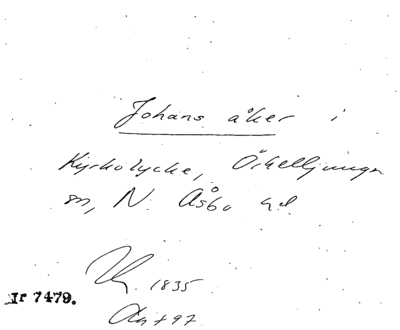 Johans åker i
Kyrkolycke, Örkelljunga
sn, N. Åsbo hd.
1835
Nr 7479.